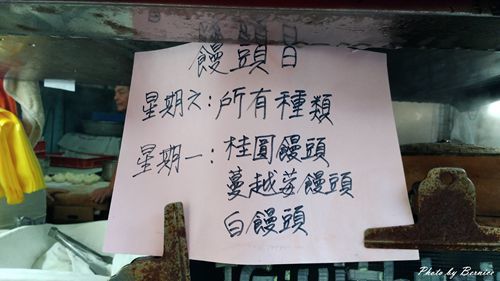 饅頭日
星期六：所有種類
星期一：桂圓饅頭
蔓越莓饅頭
白饅頭
Photo by Bernice